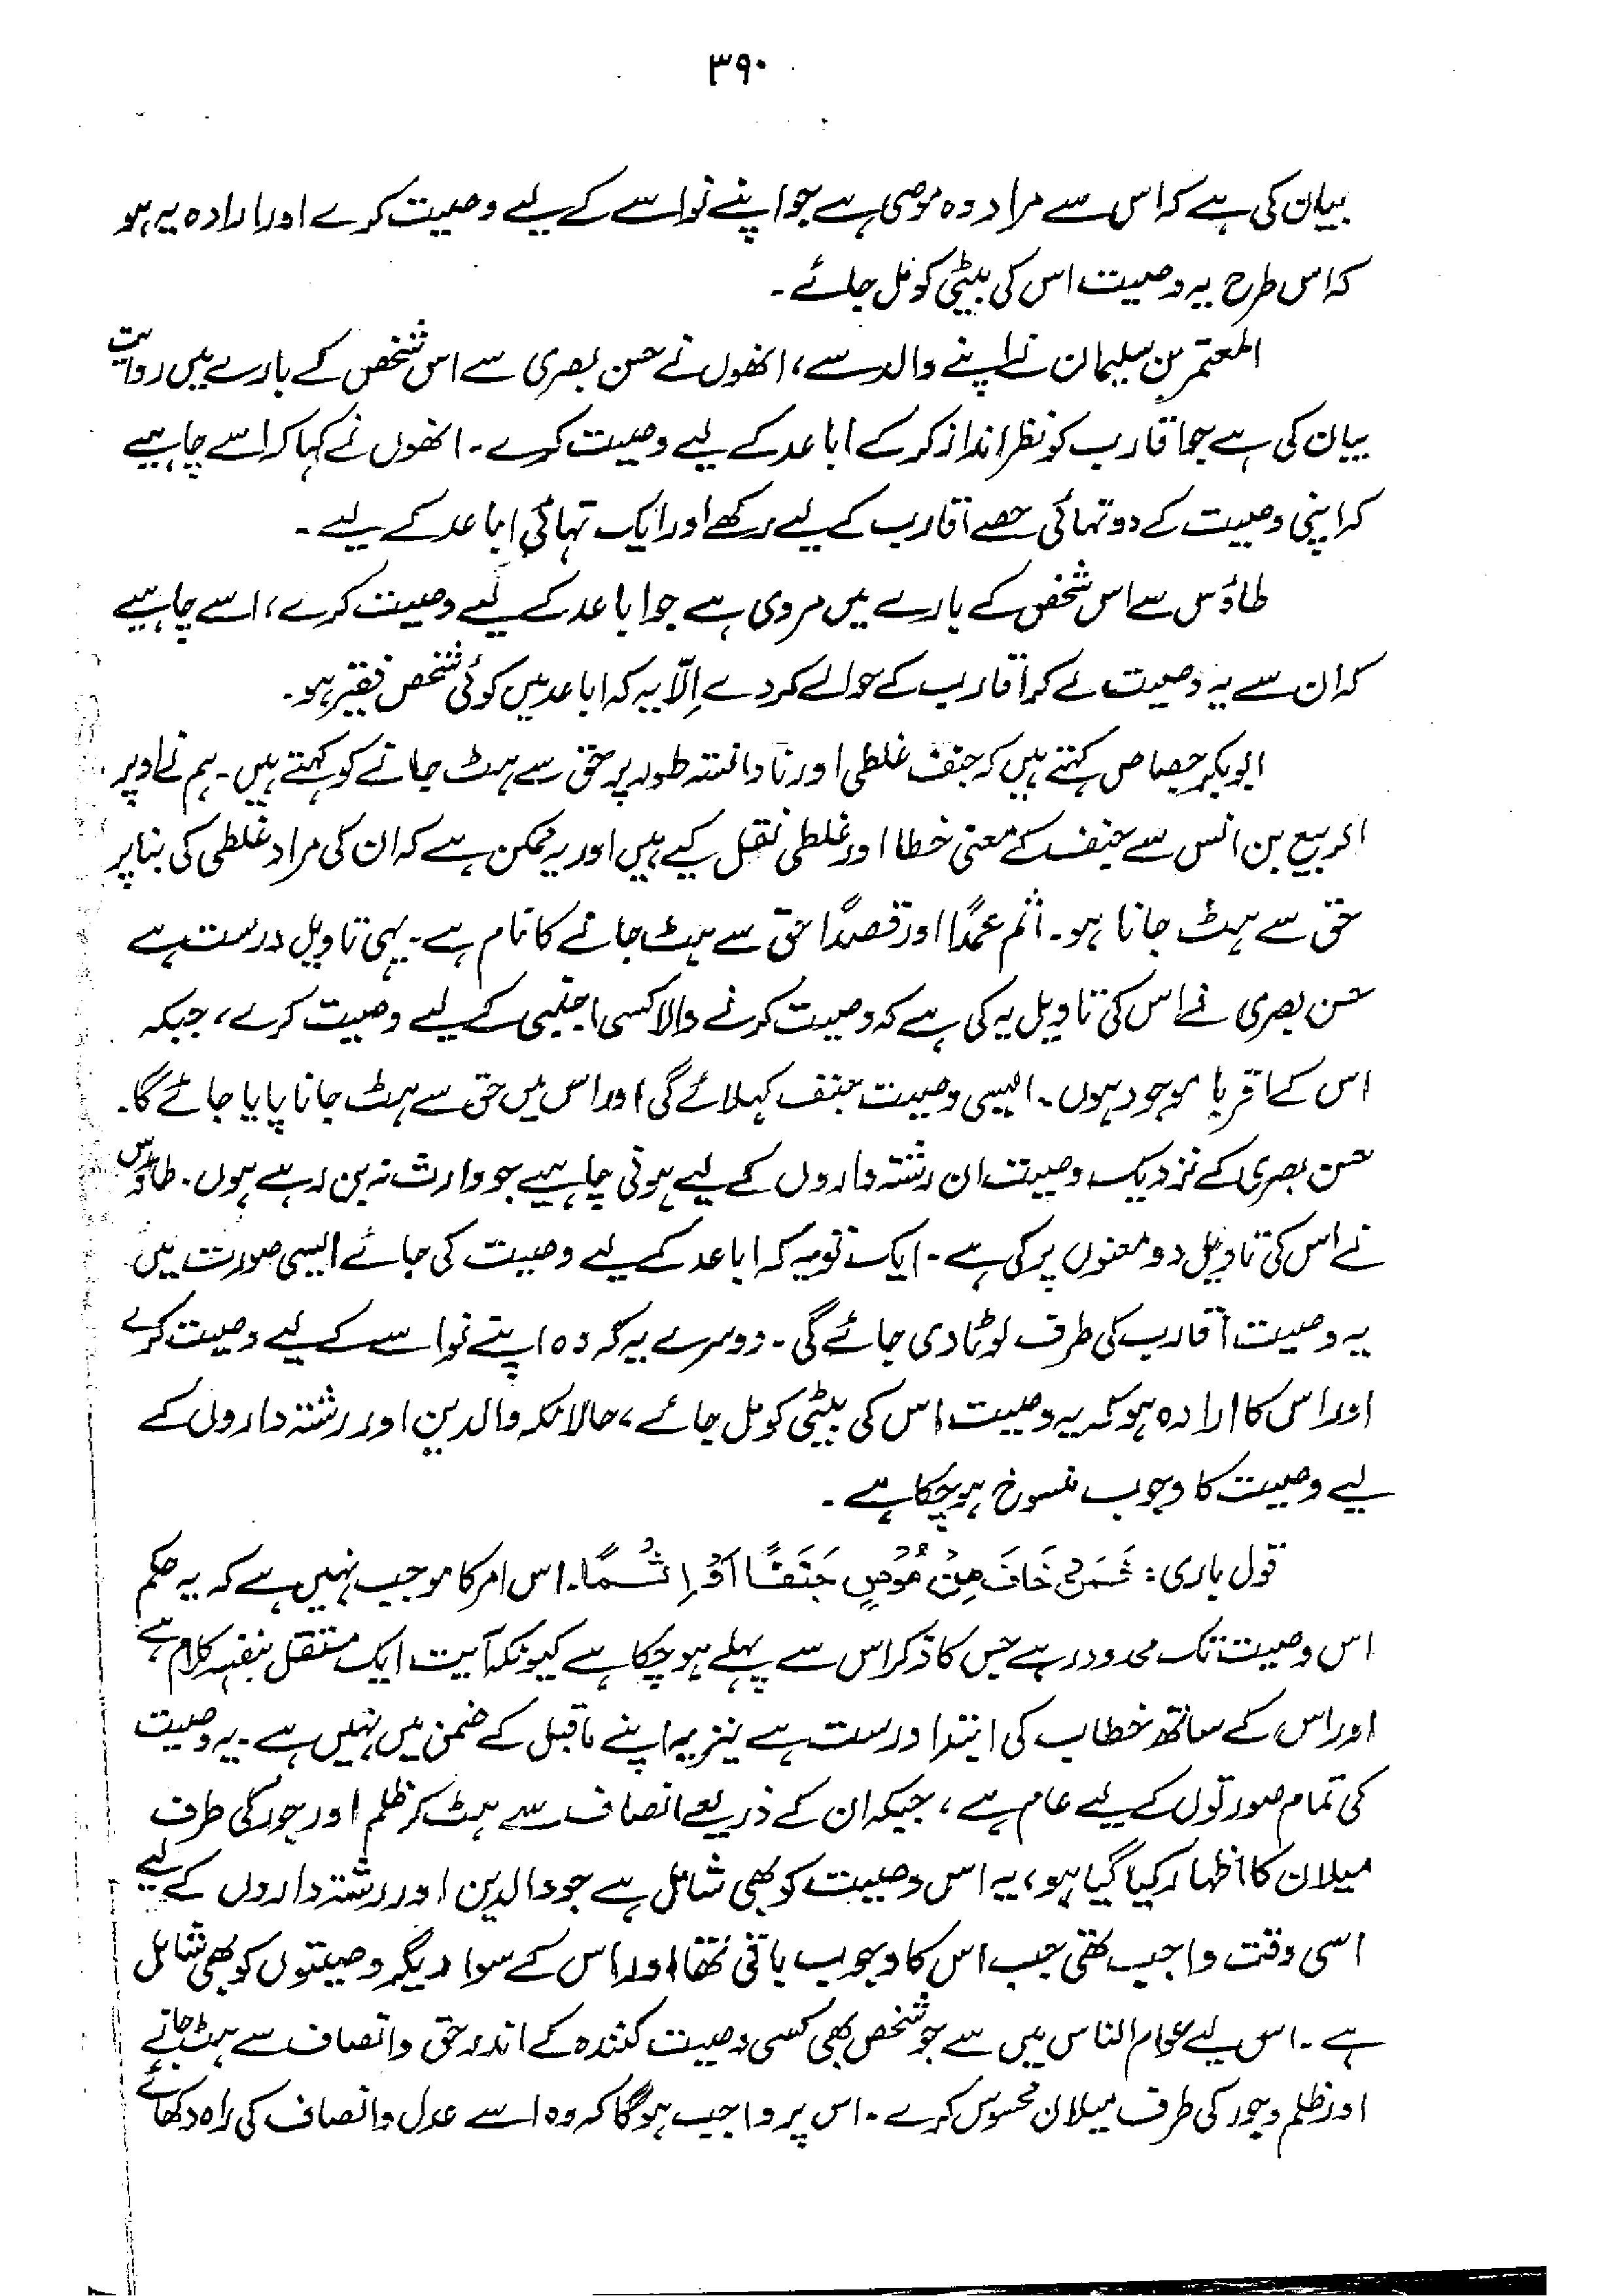 ۳۹۰
بیان کی ہے کہ اس سے مراد وہ موصی ہے جو اپنے نواسے کے لیے وصیت کرے اور ارادہ یہ ہو
کہ اس طرح یہ وصیت اس کی بیٹی کو مل جائے۔
المعتمر بن سلیمان نے اپنے والد سے، انھوں نے حسن بصری سے اس شخص کے بارے میں روایت
بیان کی ہے جو اقارب کو نظر انداز کر کے اباعد کے لیے وصیت کرے۔ انھوں نے کہا کہ اسے چاہیے
کہ اپنی وصیت کے دو تہائی حصے اقارب کے لیے رکھے اور ایک تہائی اباعد کے لیے۔
طاؤس سے اس شخص کے بارے میں مروی ہے جو اباعد کے لیے وصیت کرے، اسے چاہیے
کہ ان سے یہ وصیت لے کر اقارب کے حوالے کر دے اِلّا یہ کہ اباعد میں کوئی شخص فقیر ہو۔
ابوبکر جصاص کہتے ہیں کہ جنف غلطی اور نادانستہ طور پر حق سے ہٹ جانے کو کہتے ہیں۔ ہم نے اوپر
الربیع بن انس سے جنف کے معنی خطا اور غلطی نقل کیے ہیں اور یہ ممکن ہے کہ ان کی مراد غلطی کی بنا پر
حق سے ہٹ جانا ہو۔ اثم عمدًا اور قصدًا حق سے ہٹ جانے کا نام ہے۔ یہی تاویل درست ہے
حسن بصری نے اس کی تاویل یہ کی ہے کہ وصیت کرنے والا کسی اجنبی کے لیے وصیت کرے، جبکہ
اس کے اقربا موجود ہوں۔ ایسی وصیت جنف کہلائے گی اور اس میں حق سے ہٹ جانا پایا جائے گا۔
حسن بصری کے نزدیک وصیت ان رشتہ داروں کے لیے ہونی چاہیے جو وارث نہ بن رہے ہوں۔ طاؤس
نے اس کی تاویل دو معنوں پر کی ہے۔ ایک تو یہ کہ اباعد کے لیے وصیت کی جائے ایسی صورت میں
یہ وصیت اقارب کی طرف لوٹا دی جائے گی۔ دوسرے یہ کہ وہ اپنے نواسے کے لیے وصیت کرے
اور اس کا ارادہ ہو کہ یہ وصیت اس کی بیٹی کو مل جائے، حالانکہ والدین اور رشتہ داروں کے
لیے وصیت کا وجوب منسوخ ہو چکا ہے۔
قول باری: فَمَنْ خَافَ مِنْ مُّوْصٍ جَنَفًا اَوْ اِثْمًا۔ اس امر کا موجب نہیں ہے کہ یہ حکم
اس وصیت تک محدود رہے جس کا ذکر اس سے پہلے ہو چکا ہے کیونکہ آیت ایک مستقل بنفسہ کلام ہے
اور اس کے ساتھ خطاب کی ابتدا درست ہے نیز یہ اپنے ماقبل کے ضمن میں نہیں ہے۔ یہ وصیت
کی تمام صورتوں کے لیے عام ہے، جبکہ ان کے ذریعے انصاف سے ہٹ کر ظلم اور جور کی طرف
میلان کا اظہار کیا گیا ہو، یہ اس وصیت کو بھی شامل ہے جو والدین اور رشتہ داروں کے لیے
اسی وقت واجب تھی جب اس کا وجوب باقی تھا اور اس کے سوا دیگر وصیتوں کو بھی شامل
ہے۔ اس لیے عوام الناس میں سے جو شخص بھی کسی وصیت کنندہ کے اندر حق و انصاف سے ہٹ جانے
اور ظلم و جور کی طرف میلان محسوس کرے۔ اس پر واجب ہو گا کہ وہ اسے عدل و انصاف کی راہ دکھائے